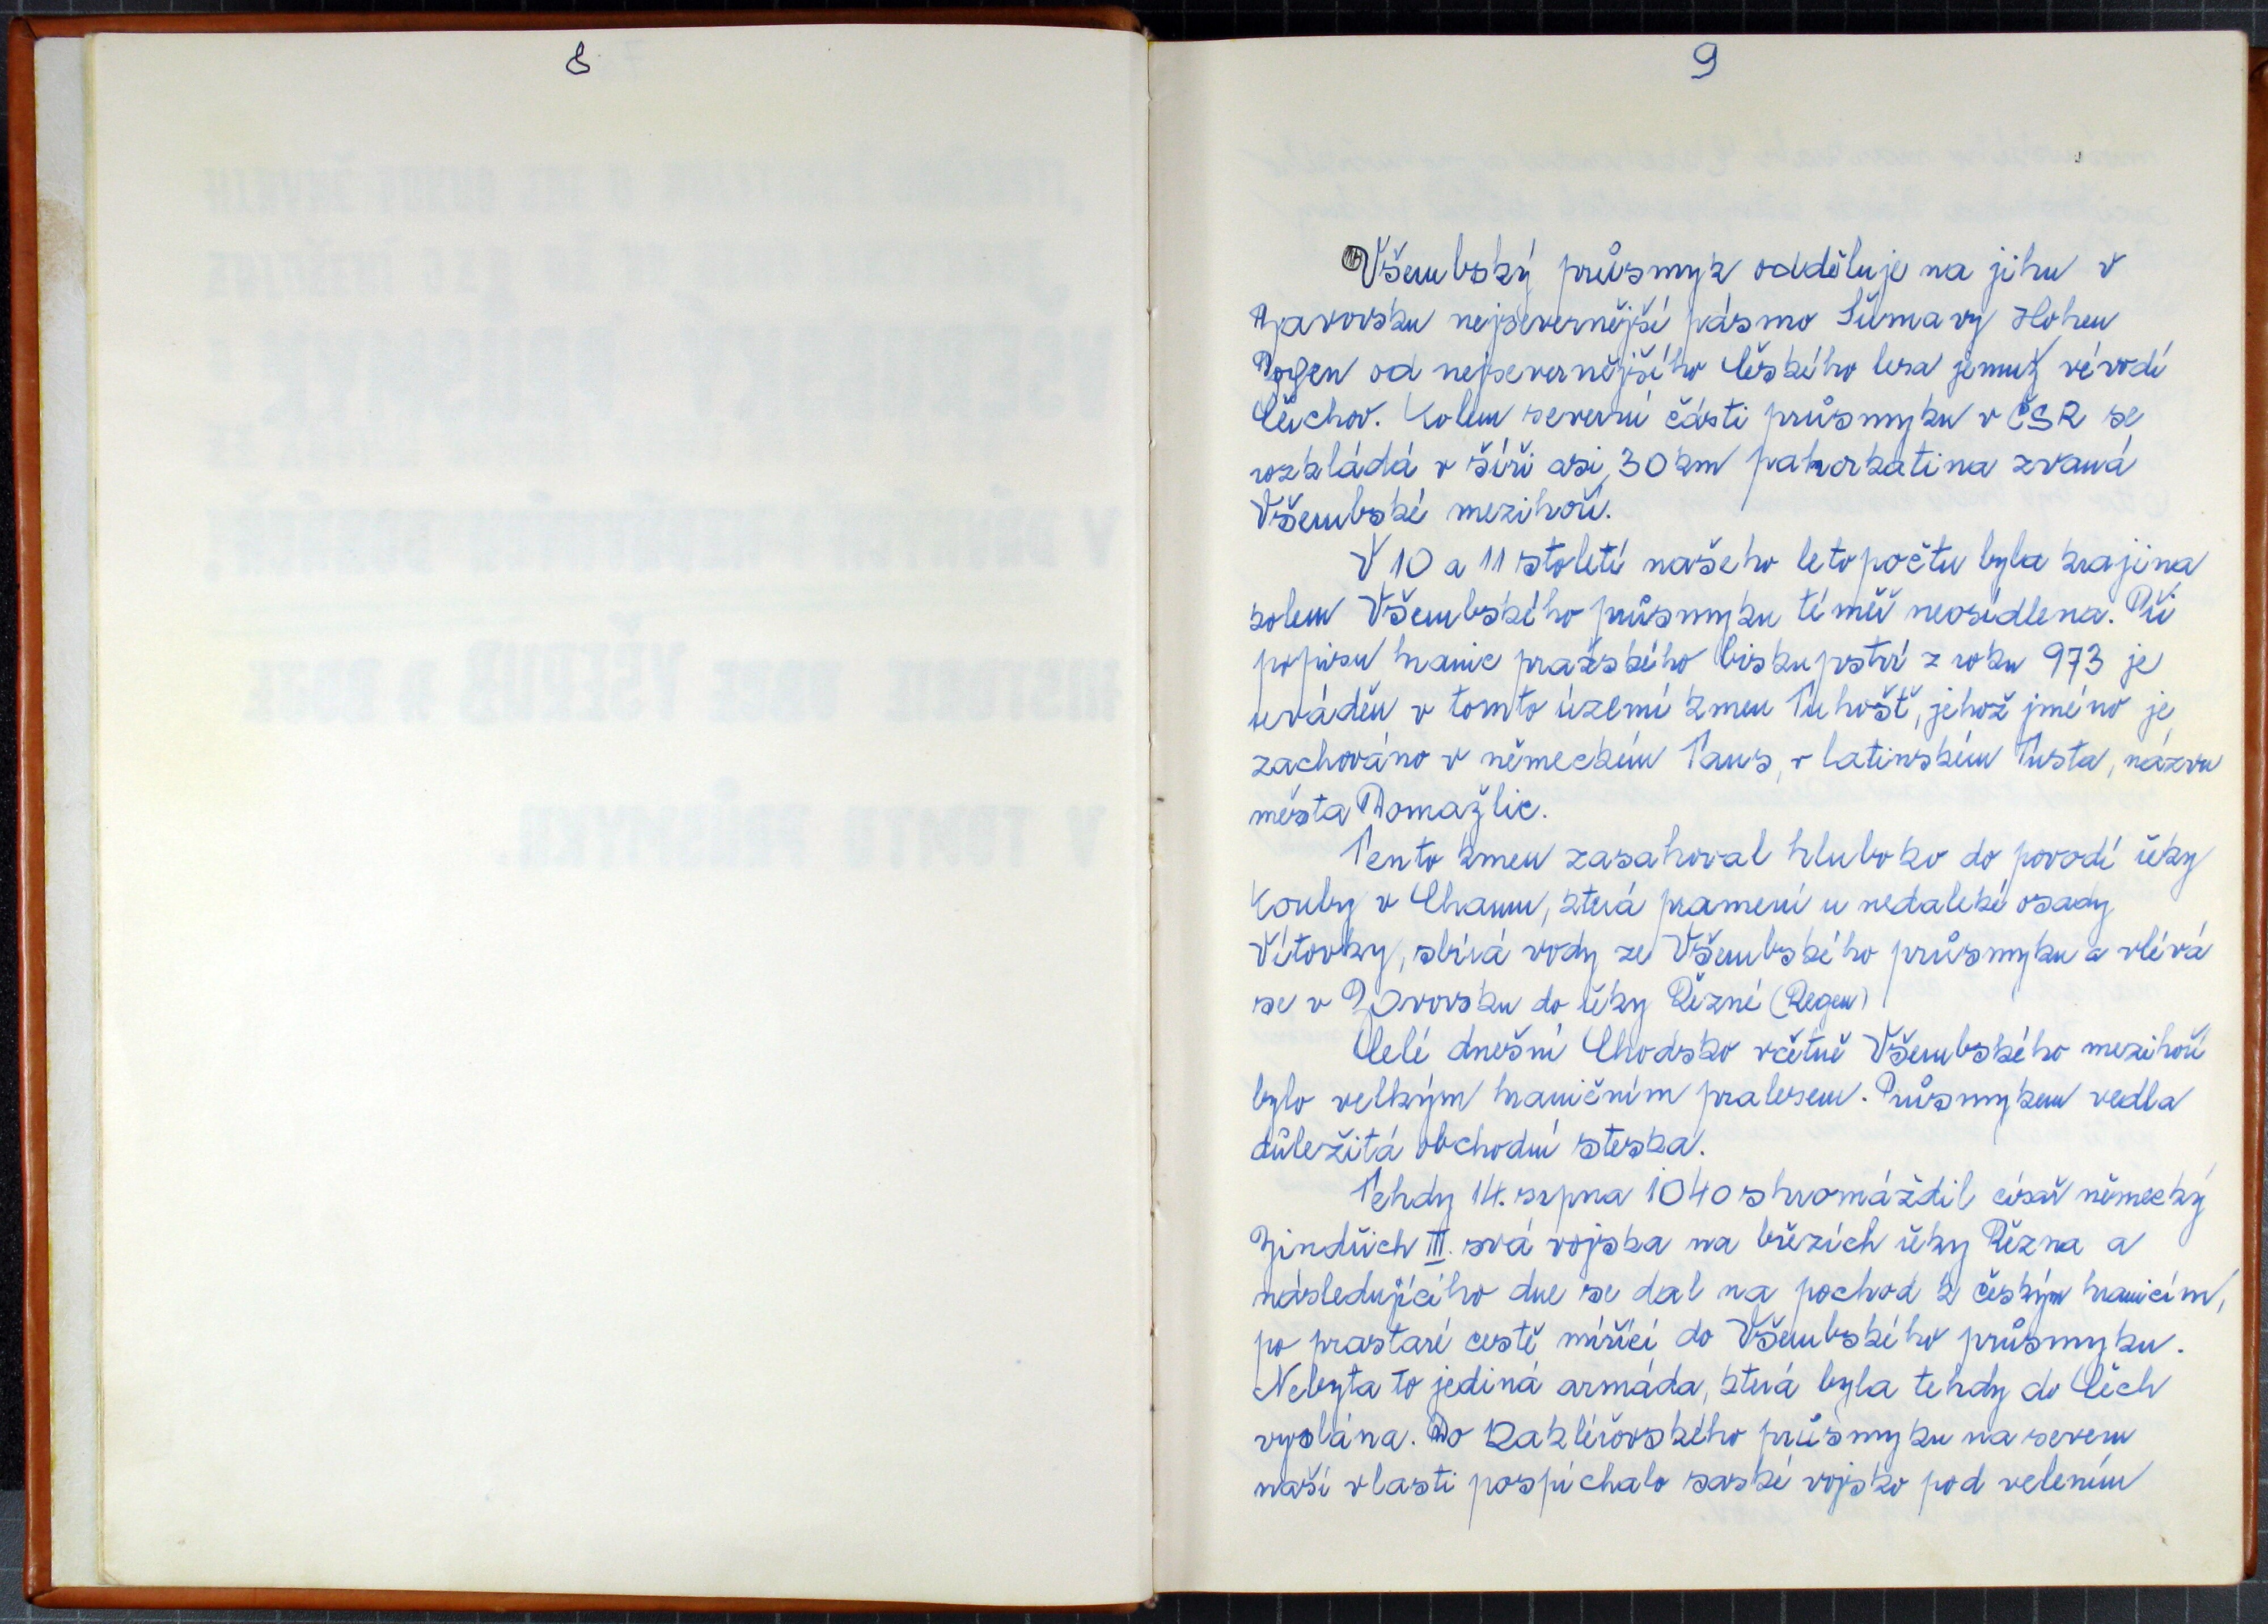 8
9
Všerubský průsmyk odděluje na jihu v
Bavorsku nejsevernější pásmo Šumavy Hohen
Bogen od nejsevernějšího Českého lesa jemuž vévodí
Čerchov. Kolem severní části průsmyku v ČSR se
rozkládá v šíři asi 30 km pahorkatina zvaná
Všerubské mezihoří.
V 10 a 11 století našeho letopočtu byla krajina
kolem Všerubského průsmyku téměř neosídlena. Při
popisu hranic pražského biskupství z roku 973 je
uváděn v tomto území kmen Tuhošť, jehož jméno je
zachováno v německém Taus, v latinském Tusta, názvu
města Domažlic.
Tento kmen zasahoval hluboko do povodí řeky
Kouby v Chamu, která pramení u nedaleké osady
Vítovky, sbírá vody ze Všerubského průsmyku a vlévá
se v Bavorsku do řeky Řezné (Regen)
Celé dnešní Chodsko včetně Všerubského mezihoří
bylo velkým hraničním pralesem. Průsmykem vedla
důležitá obchodní steska.
Tehdy 14. srpna 1040 shromáždil císař německý
Jindřich III. svá vojska na březích řeky Řezna a
následujícího dne se dal na pochod k českým hranicím,
po prastaré cestě mířící do Všerubského průsmyku.
Nebyla to jediná armáda, která byla tehdy do Čech
vyslána. Do Zakléřovského průsmyku na severu
naší vlasti pospíchalo saské vojsko pod velením